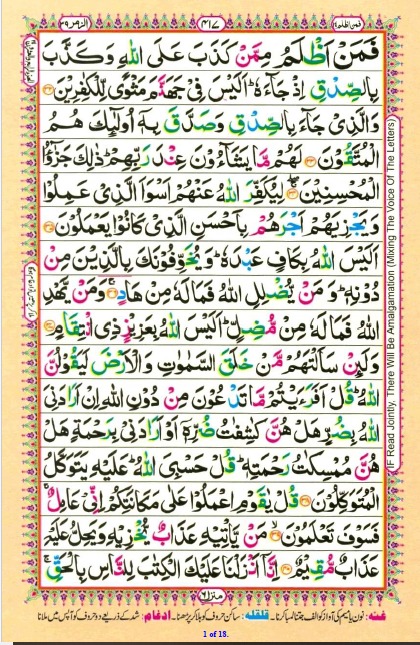 الزمر ٣٩
٤١٧
فمن اظلم ٢٤
فَمَنْ اَظْلَمُ مِمَّنْ كَذَبَ عَلَى اللّٰهِ وَكَذَّبَ
بِالصِّدْقِ اِذْ جَآءَهٗ ؕ اَلَيْسَ فِيْ جَهَنَّمَ مَثْوًى لِّلْكٰفِرِيْنَ ۝۳۲
وَالَّذِيْ جَآءَ بِالصِّدْقِ وَصَدَّقَ بِهٖۤ اُولٰٓئِكَ هُمُ
الْمُتَّقُوْنَ ۝۳۳ لَهُمْ مَّا يَشَآءُوْنَ عِنْدَ رَبِّهِمْ ؕ ذٰلِكَ جَزٰٓؤُا
الْمُحْسِنِيْنَ ۝۳۴ لِيُكَفِّرَ اللّٰهُ عَنْهُمْ اَسْوَاَ الَّذِيْ عَمِلُوْا
وَيَجْزِيَهُمْ اَجْرَهُمْ بِاَحْسَنِ الَّذِيْ كَانُوْا يَعْمَلُوْنَ ۝۳۵
اَلَيْسَ اللّٰهُ بِكَافٍ عَبْدَهٗ ؕ وَيُخَوِّفُوْنَكَ بِالَّذِيْنَ مِنْ
دُوْنِهٖ ؕ وَمَنْ يُّضْلِلِ اللّٰهُ فَمَا لَهٗ مِنْ هَادٍ ۝۳۶ وَمَنْ يَّهْدِ
اللّٰهُ فَمَا لَهٗ مِنْ مُّضِلٍّ ؕ اَلَيْسَ اللّٰهُ بِعَزِيْزٍ ذِي انْتِقَامٍ ۝۳۷
وَلَئِنْ سَاَلْتَهُمْ مَّنْ خَلَقَ السَّمٰوٰتِ وَالْاَرْضَ لَيَقُوْلُنَّ
اللّٰهُ ؕ قُلْ اَفَرَءَيْتُمْ مَّا تَدْعُوْنَ مِنْ دُوْنِ اللّٰهِ اِنْ اَرَادَنِيَ
اللّٰهُ بِضُرٍّ هَلْ هُنَّ كٰشِفٰتُ ضُرِّهٖۤ اَوْ اَرَادَنِيْ بِرَحْمَةٍ هَلْ
هُنَّ مُمْسِكٰتُ رَحْمَتِهٖ ؕ قُلْ حَسْبِيَ اللّٰهُ ؕ عَلَيْهِ يَتَوَكَّلُ
الْمُتَوَكِّلُوْنَ ۝۳۸ قُلْ يٰقَوْمِ اعْمَلُوْا عَلٰى مَكَانَتِكُمْ اِنِّيْ عَامِلٌ ۚ
فَسَوْفَ تَعْلَمُوْنَ ۝۳۹ مَنْ يَّاْتِيْهِ عَذَابٌ يُّخْزِيْهِ وَيَحِلُّ عَلَيْهِ
عَذَابٌ مُّقِيْمٌ ۝۴۰ اِنَّاۤ اَنْزَلْنَا عَلَيْكَ الْكِتٰبَ لِلنَّاسِ بِالْحَقِّ ۚ
(IF Read Jointly, There Will Be Amalgamation (Mixing The Voice Of The Letters)
منزل ٦
غنہ: نون یا میم کی آواز کو الف جتنا لمبا کرنا۔ قلقلہ: ساکن حروف کو ہلا کر پڑھنا۔ ادغام: شد کے ذریعے دو حروف کو آپس میں ملانا
1 of 18.